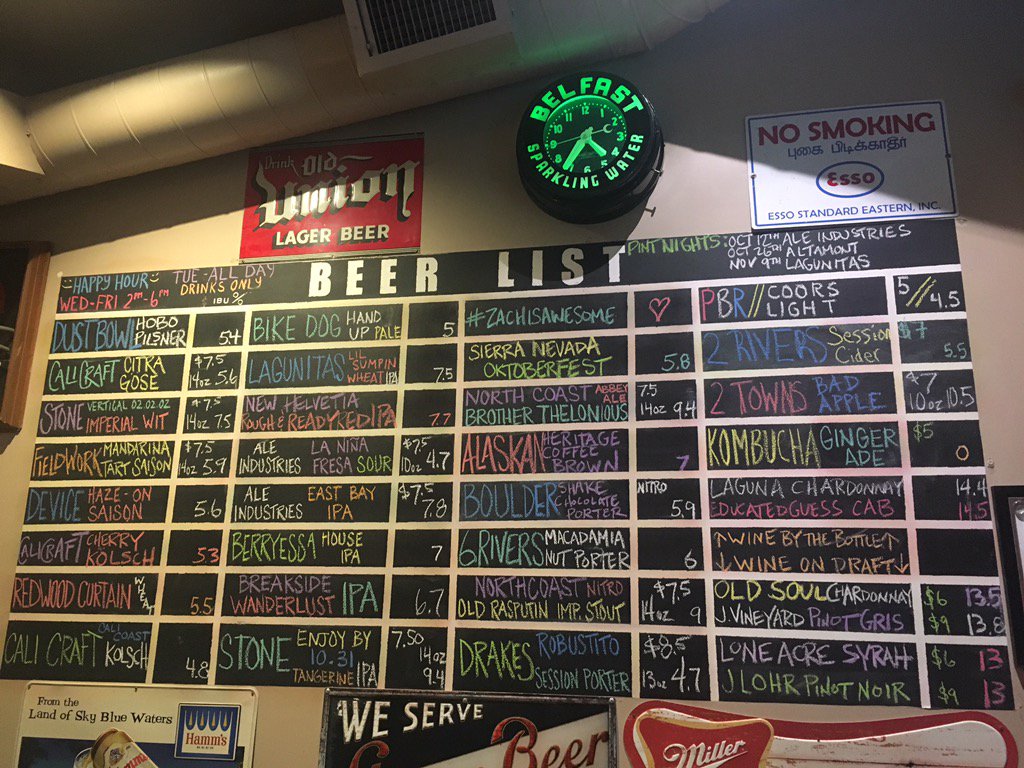 Drink Old
Union
LAGER BEER
BELFAST
12 1 2 3 4 5 6 7 8 9 10 11
SPARKLING WATER
NO SMOKING
புகை பிடிக்காதீர்
Esso
ESSO STANDARD EASTERN, INC.
HAPPY HOUR
TUE-ALL DAY
WED-FRI 2PM-6PM
DRINKS ONLY
$ IBU %
BEER LIST
PINT NIGHTS: OCT 12TH ALE INDUSTRIES
OCT 26TH ALTAMONT
NOV 9TH LAGUNITAS
DUST BOWL HOBO PILSNER 5.4
CALICRAFT CITRA GOSE $7.5 14oz 5.6
STONE VERTICAL 02.02.02 IMPERIAL WIT $7.5 14oz 7.5
FIELDWORK MANDARINA TART SAISON $7.5 14oz 5.9
DEVICE HAZE-ON SAISON 5.6
CALICRAFT CHERRY KOLSCH 5.3
REDWOOD CURTAIN WHEAT 5.5
CALI CRAFT CALI COAST KOLSCH 4.8
BIKE DOG HAND UP PALE 5
LAGUNITAS LIL SUMPIN WHEAT IPA 7.5
NEW HELVETIA ROUGH & READY RED IPA 7.7
ALE INDUSTRIES LA NIÑA FRESA SOUR $7.5 10oz 4.7
ALE INDUSTRIES EAST BAY IPA $7.5 7.8
BERRYESSA HOUSE IPA 7
BREAKSIDE WANDERLUST IPA 6.7
STONE ENJOY BY 10.31 TANGERINE IPA 7.50 14oz 9.4
#ZACHISAWESOME ♡
SIERRA NEVADA OKTOBERFEST 5.8
NORTH COAST ABBEY ALE BROTHER THELONIOUS 7.5 14oz 9.4
ALASKAN HERITAGE COFFEE BROWN 7
BOULDER SHAKE CHOCOLATE PORTER NITRO 5.9
6 RIVERS MACADAMIA NUT PORTER 6
NORTHCOAST NITRO OLD RASPUTIN IMP. STOUT $7.5 14oz 9
DRAKES ROBUSTITO SESSION PORTER $8.5 13oz 4.7
PBR // COORS LIGHT 5 // 4.5
2 RIVERS Session Cider $7 5.5
2 TOWNS BAD APPLE $7 10oz 10.5
KOMBUCHA GINGER ADE $5 0
LAGUNA CHARDONNAY 14.4
EDUCATED GUESS CAB 14.5
↑WINE BY THE BOTTLE↑
↓WINE ON DRAFT↓
OLD SOUL CHARDONNAY $6 13.5
J. VINEYARD PINOT GRIS $9 13.8
LONE ACRE SYRAH $6 13
J LOHR PINOT NOIR $9 13
From the
Land of Sky Blue Waters
Hamm's
BEER
WE SERVE
Beer
Miller